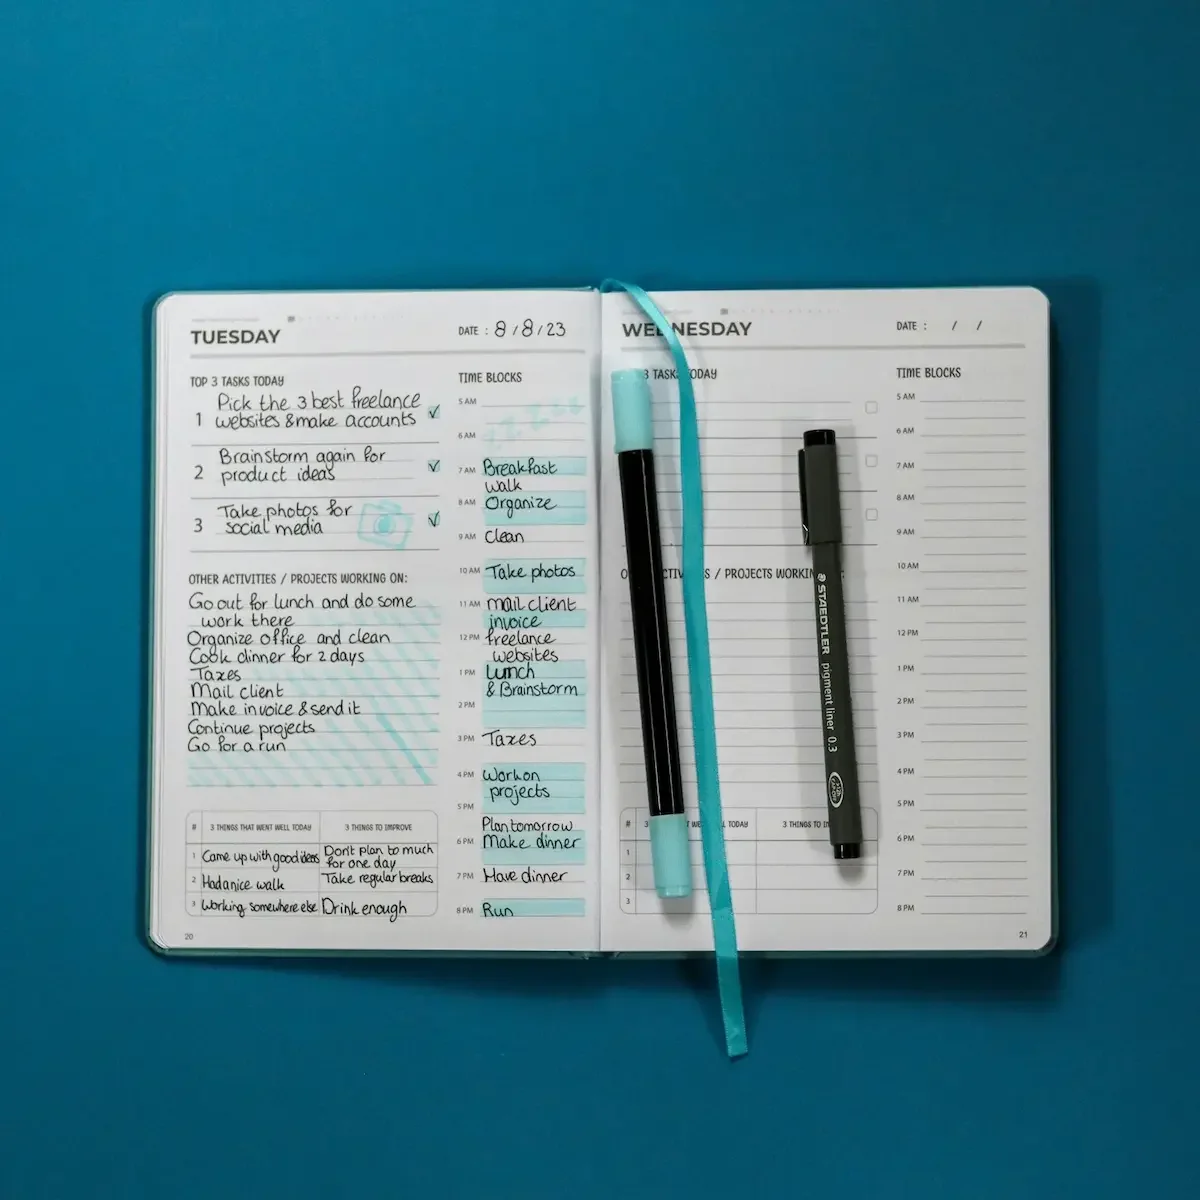 TUESDAY
DATE : 8 / 8 / 23
TOP 3 TASKS TODAY
1 Pick the 3 best freelance
websites & make accounts
2 Brainstorm again for
product ideas
3 Take photos for
social media
OTHER ACTIVITIES / PROJECTS WORKING ON:
Go out for lunch and do some
work there
Organize office and clean
Cook dinner for 2 days
Taxes
Mail client
Make invoice & send it
Continue projects
Go for a run
# 3 THINGS THAT WENT WELL TODAY 3 THINGS TO IMPROVE
1 Came up with good ideas Don't plan to much
for one day
2 Had a nice walk Take regular breaks
3 Working somewhere else Drink enough
20
TIME BLOCKS
5 AM Z Z Z Z
6 AM
7 AM Breakfast
walk
8 AM Organize
9 AM Clean
10 AM Take photos
11 AM Mail client
invoice
12 PM freelance
websites
1 PM Lunch
& Brainstorm
2 PM
3 PM Taxes
4 PM Work on
projects
5 PM
Plan tomorrow
6 PM Make dinner
7 PM Have dinner
8 PM Run
WEDNESDAY
DATE : / /
3 TASKS TODAY
ACTIVITIES / PROJECTS WORKING
# 3 WENT WELL TODAY 3 THINGS TO
1
2
3
TIME BLOCKS
5 AM
6 AM
7 AM
8 AM
9 AM
10 AM
11 AM
12 PM
1 PM
2 PM
3 PM
4 PM
5 PM
6 PM
7 PM
8 PM
21
STAEDTLER pigment liner 0.3